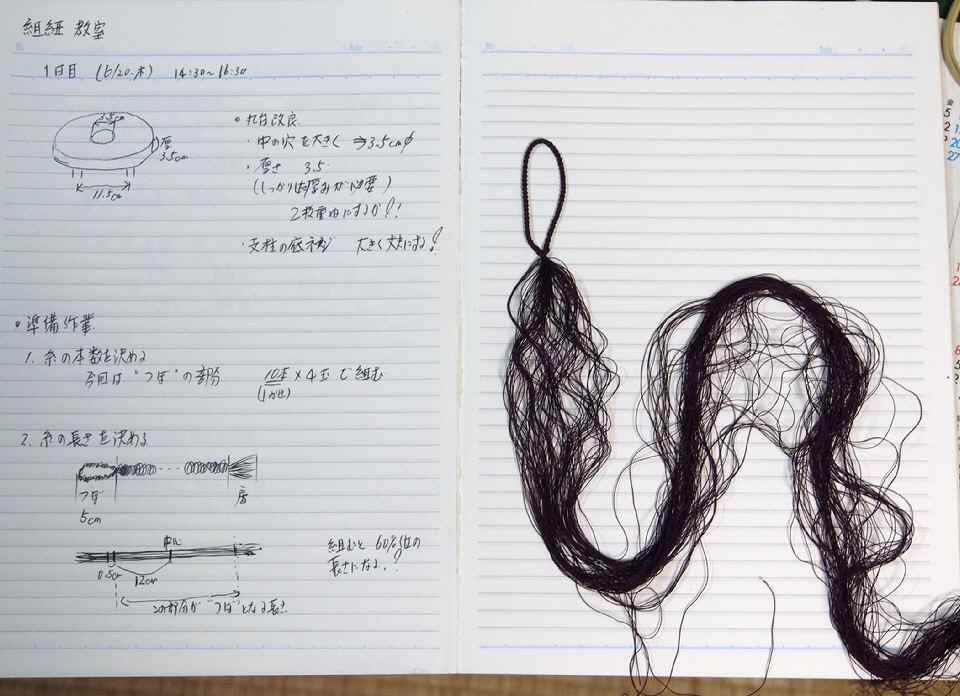 組紐 教室
1日目 (6/20.木) 14:30~16:30
3.5cm
厚
3.5cm
11.5cm
丸台改良
・中の穴を大きく ⇒3.5cmφ
・厚さ 3.5
(しっかり 厚みが必要)
2枚重ねにするか?!
・支柱の底 大きく 丈夫にする?
準備作業
1. 糸の本数を決める
今回は "つぼ" の部分 10玉×4玉で組む
2. 糸の長さを決める
・・・
つぼ
房
5cm
中心
0.5cm
12cm
組むと 60%位の
長さになる.?
この部分が "つぼ" となる長さ
5
2
20
27